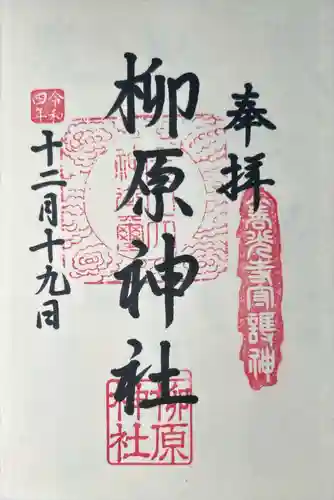 奉拝
長光寺守護神
柳原神社
柳原神社
令和四年
十二月十九日